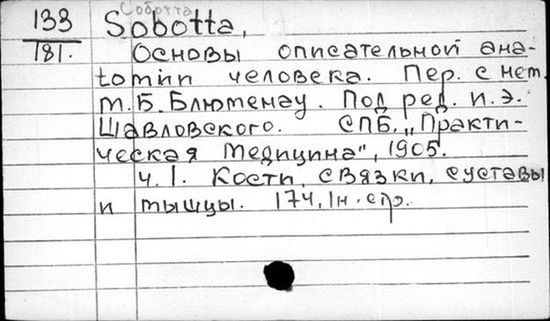 Соботта
133 Sobotta,
181. Основы описательной ана-
томии человека. Пер. с нем.
М.Б. Блюменау. Под ред. И.Э.
Шавловского. СПБ. „Практи-
ческая медицина", 1905.
Ч. I. Кости, связки, суставы
и мышцы. 174, Iн. стр.